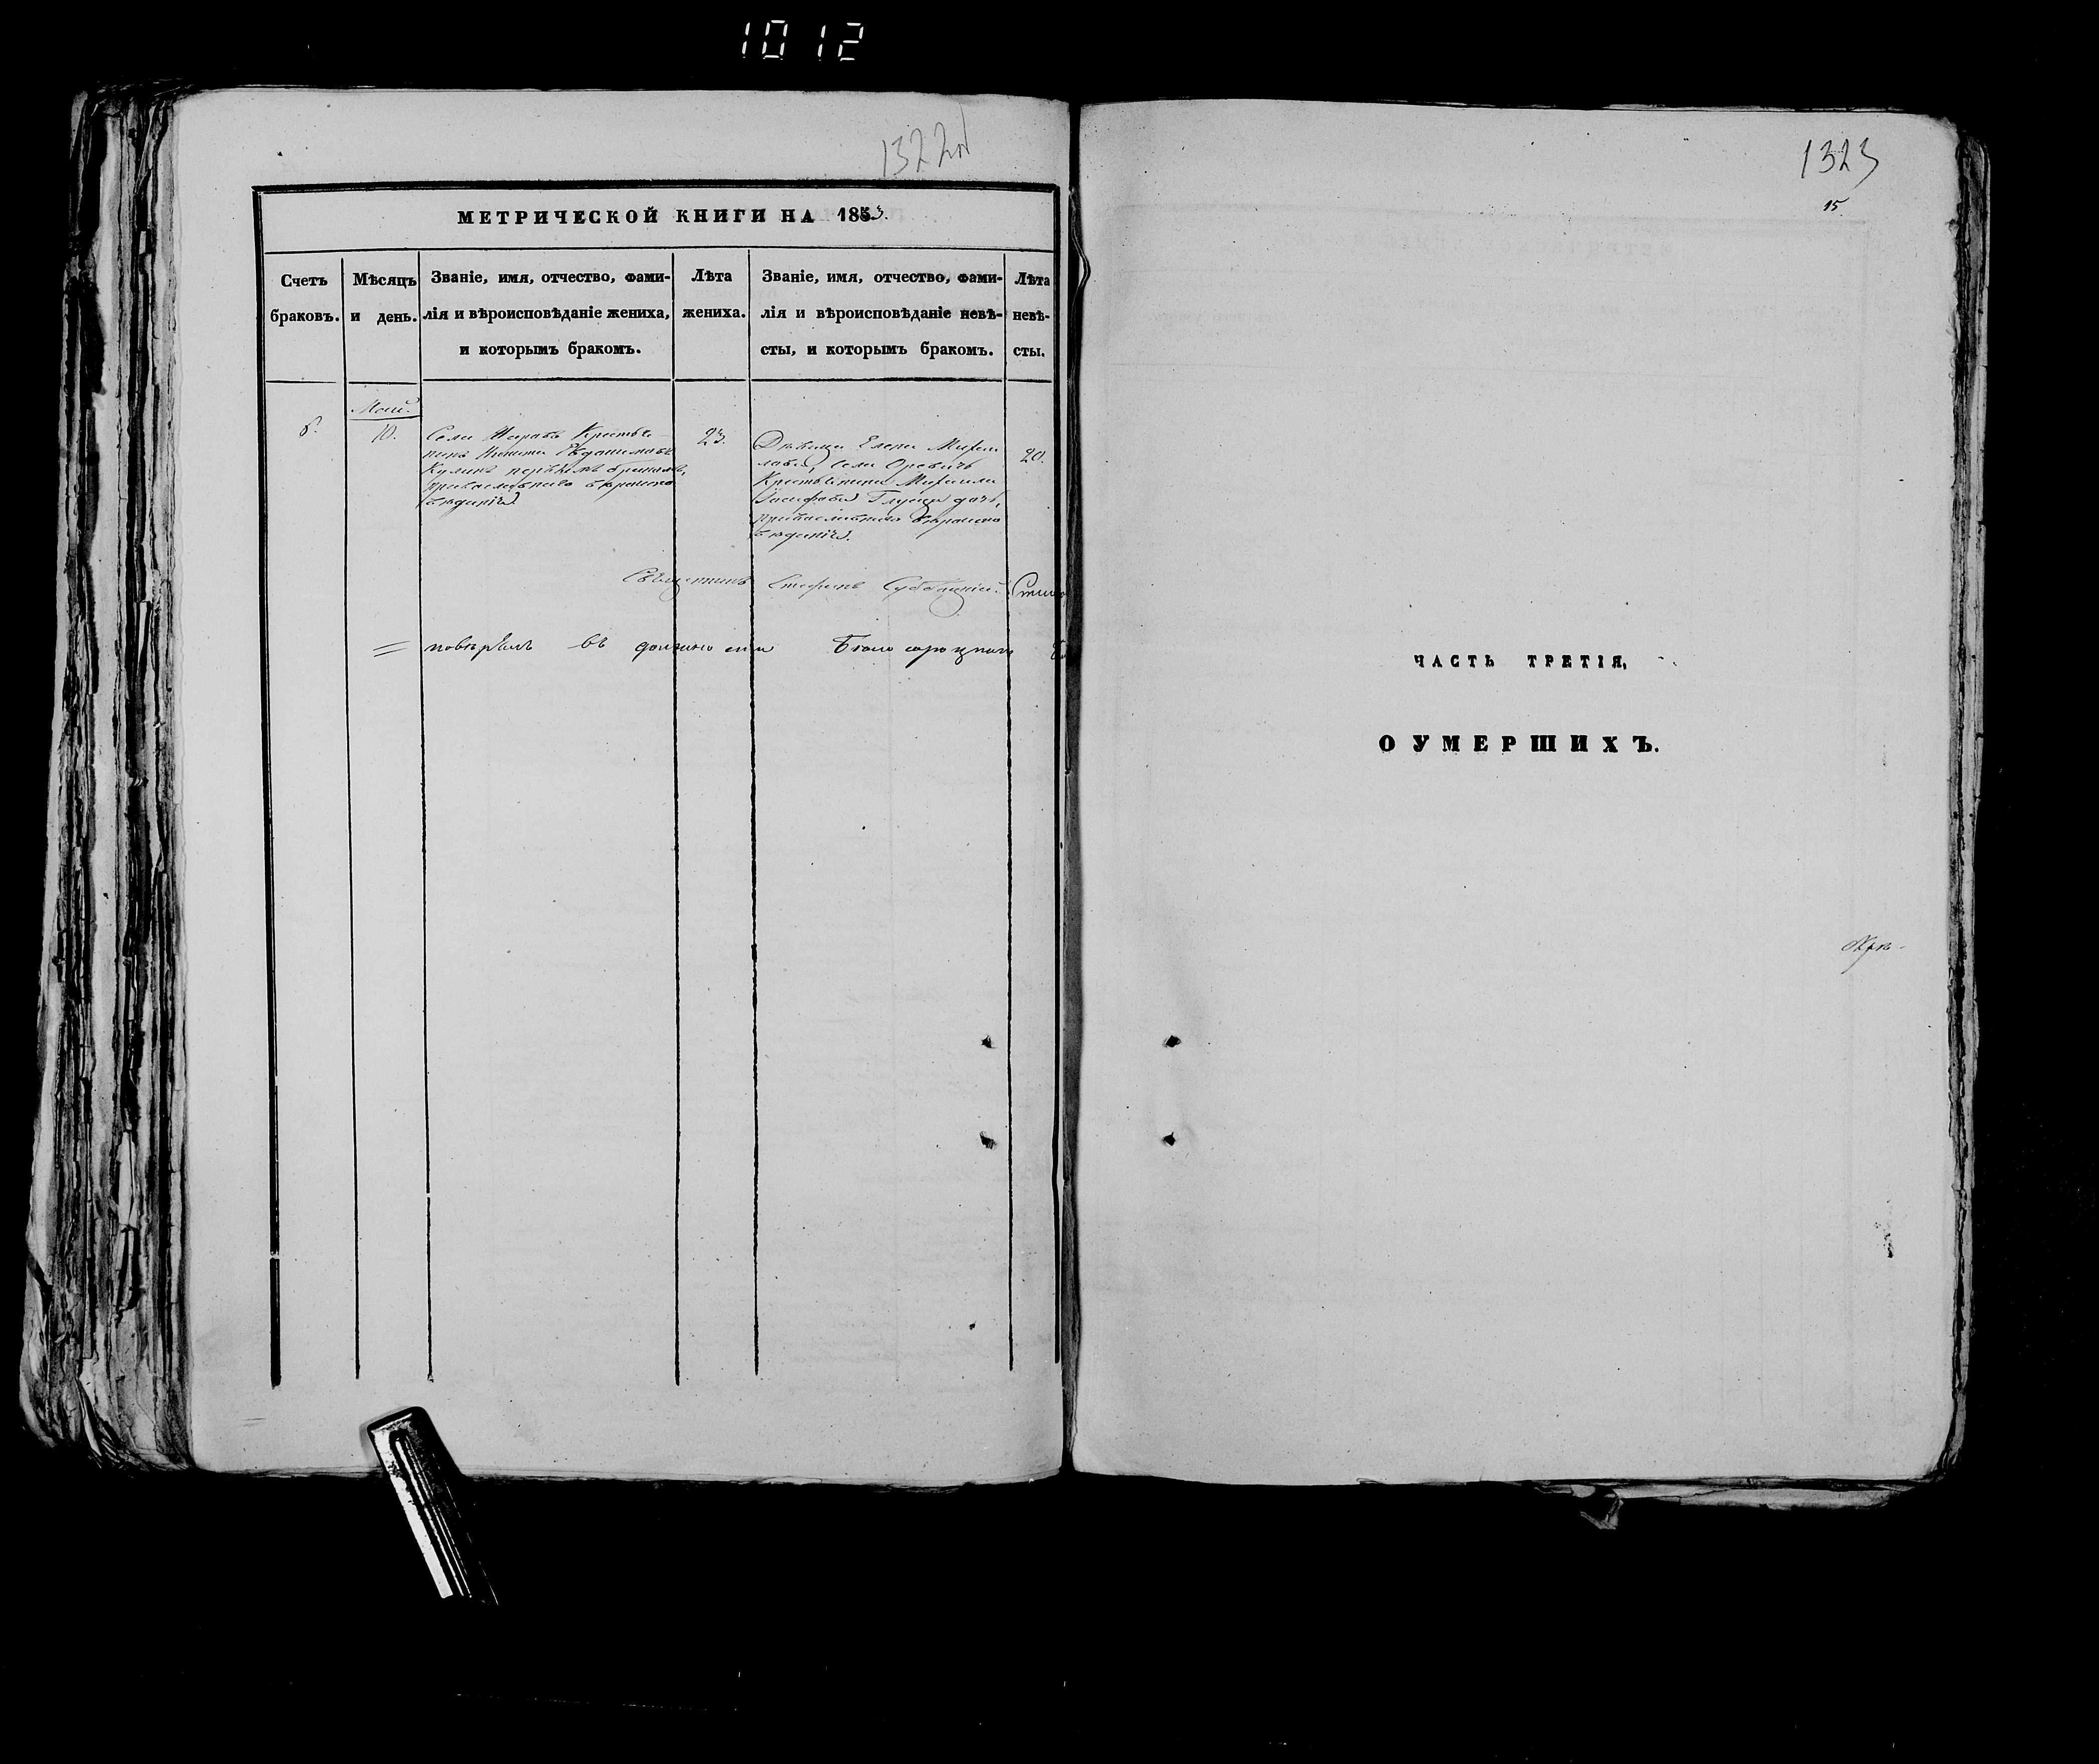 1012
1322
МЕТРИЧЕСКОЙ КНИГИ НА 1853.
Счетъ браковъ.
Мѣсяцъ и день.
Званіе, имя, отчество, фами-
лія и вѣроисповѣданіе жениха,
и которымъ бракомъ.
Лѣта жениха.
Званіе, имя, отчество, фами-
лія и вѣроисповѣданіе невѣ-
сты, и которымъ бракомъ.
Лѣта невѣ-
сты.
Маій
6.
10.
Села Крестья-
нинъ Никита
Куликъ первымъ бракомъ,
православнаго вѣроиспо-
вѣданія
23.
Дѣвица Елена Михаи-
лова, села Оревичъ
Крестьянина Михаила
Іосифова дочь,
православнаго вѣроиспо-
вѣданія.
20.
Священникъ Стефанъ
повѣрялъ въ должности Благочиннаго
1323
15
ЧАСТЬ ТРЕТІЯ,
О УМЕРШИХЪ.